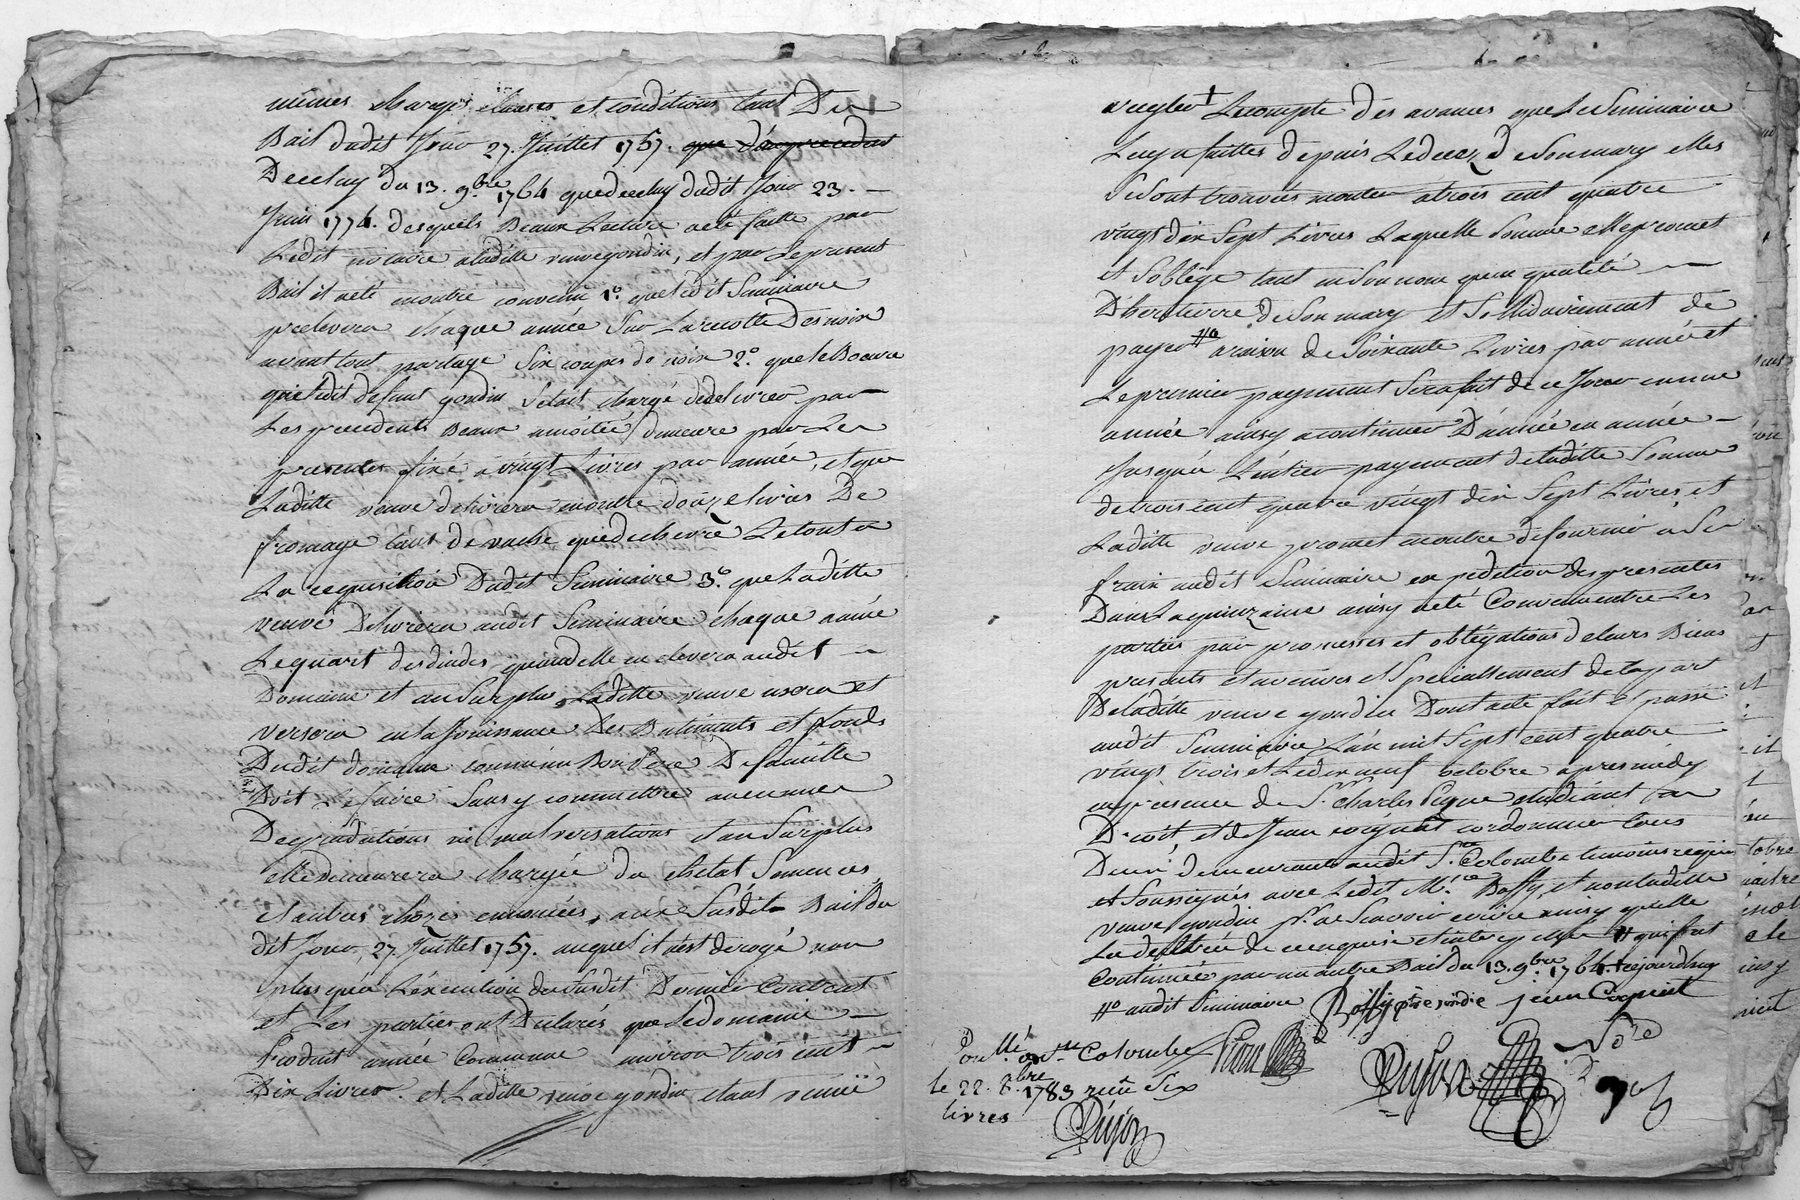 mêmes charges clauses et conditions tant Du
Bail dudit Jour 27. Juillet 1757. que d'un precedent
De celuy du 13. 9.bre 1764 que de celuy dudit Jour 23.
Juin 1774. desquels Beaux Lecture a eté faitte par
Ledit notaire a laditte veuve gondin, et par Le present
Bail il a eté en outre convenu 1.o que ledit Seminaire
prelevera chaque année Sur La recolte Des noix
avant tout partage Six coupes de noix 2.o que le Beurre
que ledit defunt gondin S'etait chargé de delivrer par
Les precedents Beaux a moitié demeure par Les
presentes fixé a vingt Livres par année, et que
Laditte veuve delivrera en outre douze livres De
fromage tant De vache que de chevre Le tout a
La requisition Dudit Seminaire 3.o que Laditte
veuve Delivrera audit Seminaire chaque année
Le quart des dindes quand elle en elevera audit
Domaine et au Surplus Laditte veuve usera et
versera en la Jouissance Des Batiments et fonds
Dudit domaine comme un Bon Pere De famille
Doit le faire Sans y commettre aucunes
Degradations ni malversations et au Surplus
elle demeurera chargée du chetal Semences
et autres choses enoncées aux Susdits Bail du
dit Jour 27. Juillet 1757. auquel il n'est derogé non
plus qu'a L'execution du Susdit Dernier Contrat
et Les parties ont Declarés que Le domaine
Produit année Commune environ trois cent
Dix Livres. et Laditte veuve gondin etant venüe
a regler Le compte Des avances que Le Seminaire
Luy a faittes depuis Le decez de Son mary elles
Se Sont trouvées monter a trois cent quatre
vingt dix Sept Livres Laquelle Somme elle promet
et S'oblige tant en Son nom qu'en qualité
D'heritiere de Son mary et Sollidairement de
payer #o a raison de Soixante Livres par année et
Le premier payement Sera fait de ce Jour en une
année ainsy a continuer D'année en année
Jusqu'a L'entier payement de laditte Somme
de trois cent quatre vingt dix Sept Livres et
Laditte veuve promet en outre de fournir a Ses
frais audit Seminaire expedition des presentes
Dans La quinzaine ainsy a eté Convenu entre Les
parties par promesses et obligations de leurs Biens
presents et avenirs et Specialement de la part
De laditte veuve gondin Dont acte fait et passé
audit Seminaire L'an mil Sept cent quatre
vingt trois et Le dix neuf octobre apres midy
en presence de S.r Charles Pigne etudiant en
Droit, et de Jean Coignet cordonnier tous
Deux demeurants audit S.te Colombe temoins requis
et Soussignés avec Ledit M.re Boffy, et non laditte
veuve gondin p.r ne Scavoir ecrire ainsy qu'elle
La declaré de ce enquise et interpellée # qui fut
Continuée par un autre Bail du 13. 9.bre 1764.
#o audit Seminaire Boffy ptre sindic jean Coignet
Con.llé a S.te Colombe
le 22. 8.bre 1783 reçu Six
livres
Dujon
Dujon